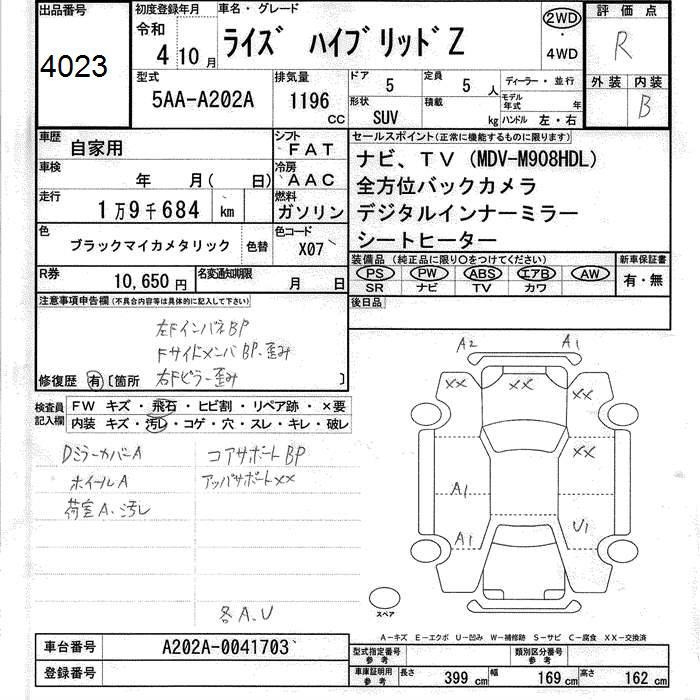 出品番号
4023
初度登録年月
令和
4 10月
車名・グレード
ライズ ハイブリッドZ
2WD
・
4WD
評価点
R
外装 内装
B
型式
5AA-A202A
排気量
1196
CC
ドア
5
定員
5 人
ディーラー・並行
形状
SUV
積載
kg
モデル
年式
年
ハンドル 左・右
車歴
自家用
シフト
FAT
車検
年 月( 日)
冷房
AAC
走行
1万9千684 km
燃料
ガソリン
色
ブラックマイカメタリック
色替
色コード
X07
R券
10,650円
名変通知期限
月 日
セールスポイント(正常に機能するものに限ります)
ナビ、TV (MDV-M908HDL)
全方位バックカメラ
デジタルインナーミラー
シートヒーター
装備品 (純正品に限り○をつけてください)
PS PW ABS エアB AW
SR ナビ TV カワ
新車保証書
有・無
後日品
注意事項申告欄(不具合内容等は具体的に記入して下さい)
左FインパネBP
FサイドメンバBP・歪み
修復歴 有 〔箇所 右Fピラー歪み 〕
検査員
記入欄
FW キズ・飛石・ヒビ割・リペア跡・×要
内装 キズ・汚レ・コゲ・穴・スレ・キレ・破レ
DミラーカバーA
ホイールA
荷室A、汚レ
コアサポートBP
アッパサポートXX
各A、U
A2 A1
XX XX
XX
XX
A1
A1 U1
スペア
A-キズ E-エクボ U-凹み W-補修跡 S-サビ C-腐食 XX-交換済
車台番号
A202A-0041703
登録番号
型式指定番号
参考
類別区分番号
参考
車庫証明用
参考
長さ 399 cm 幅 169 cm 高さ 162 cm